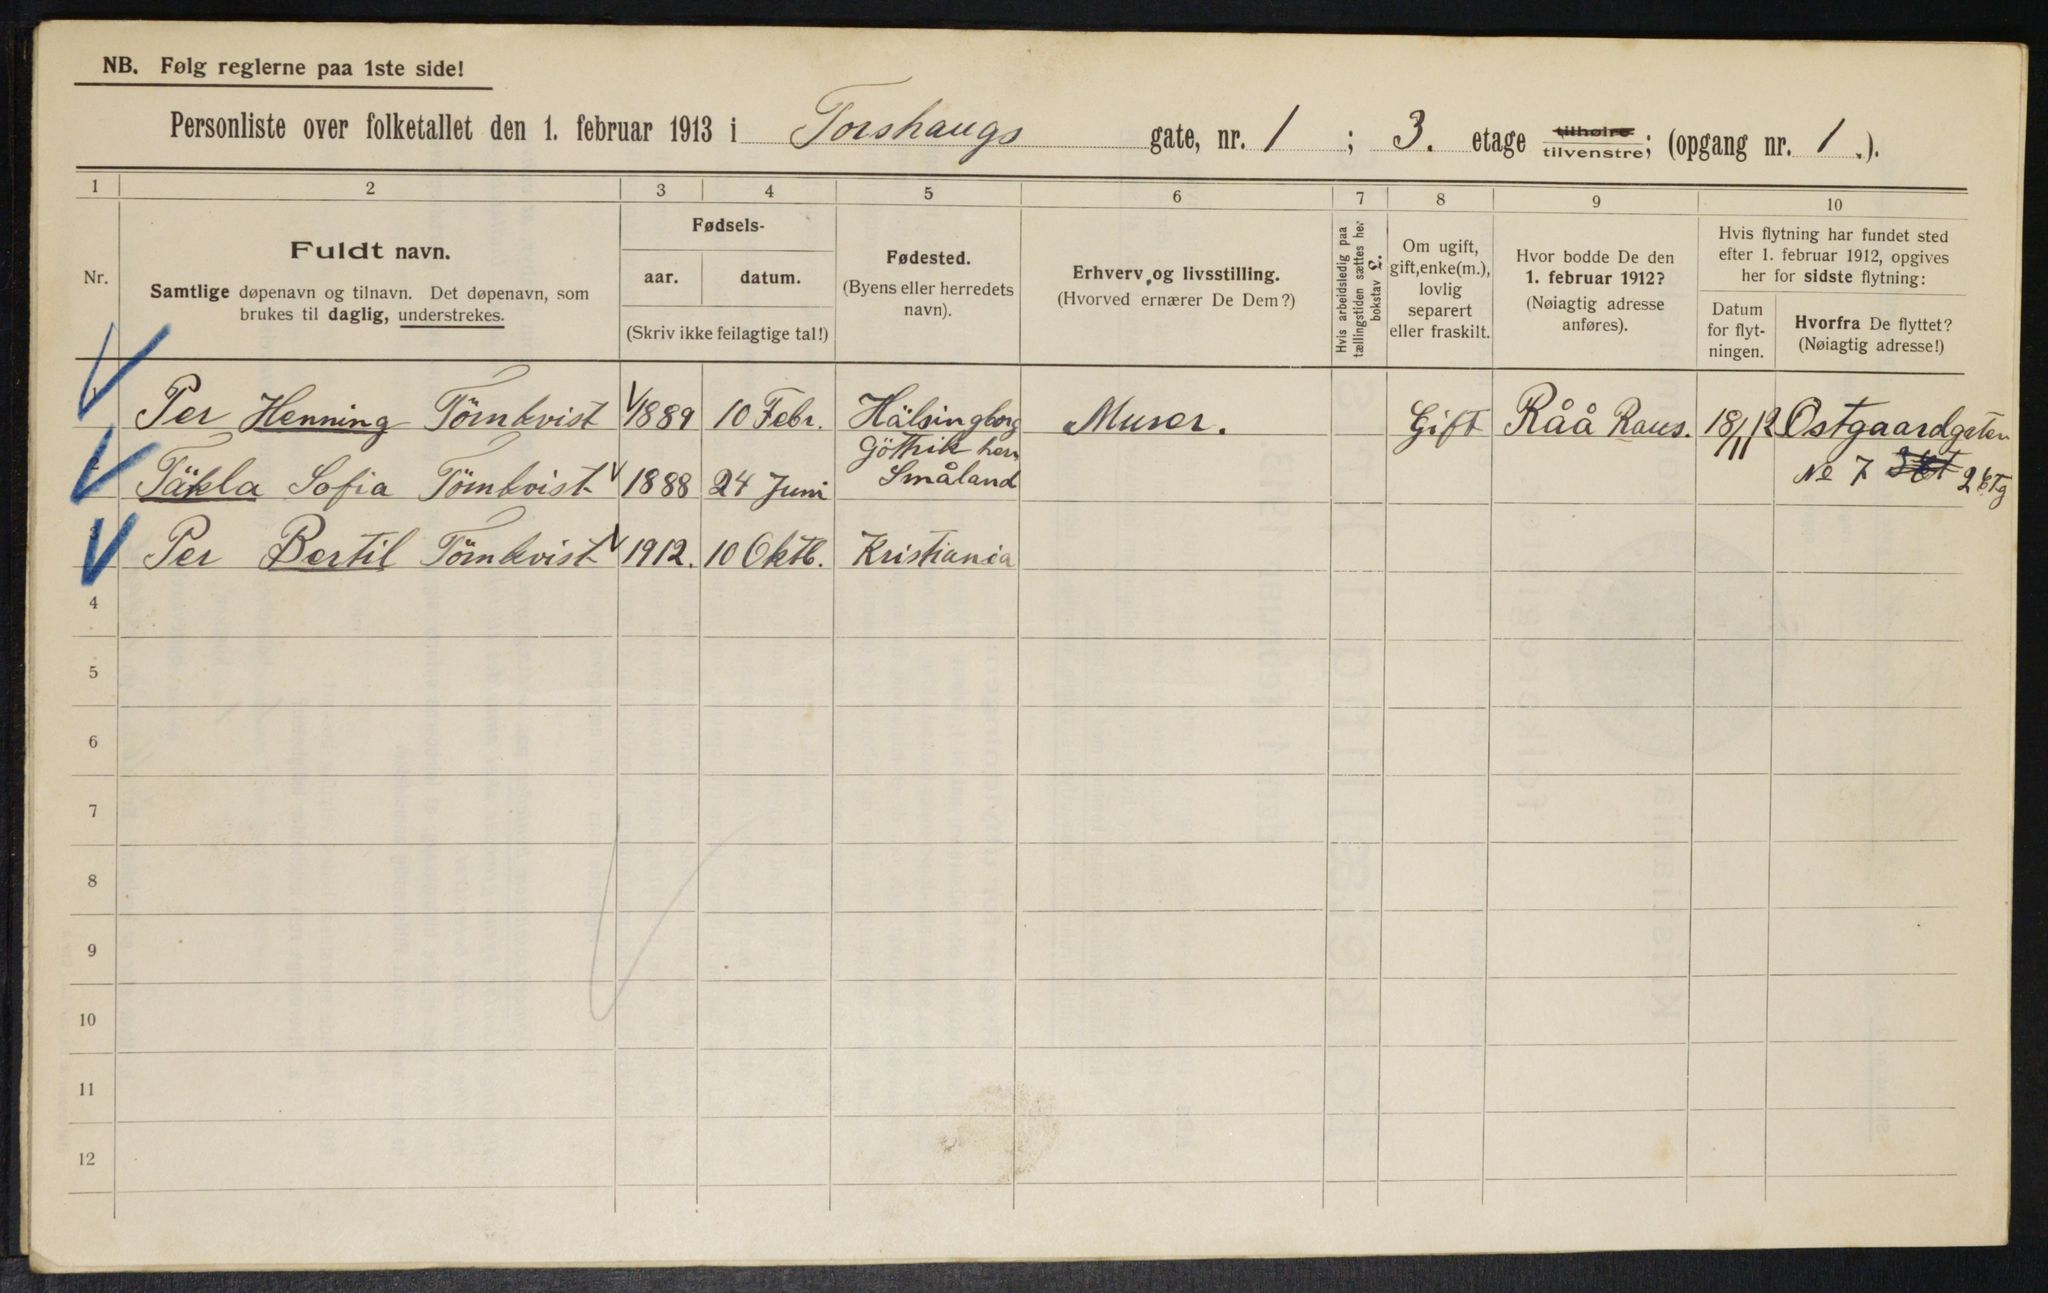 NB. Følg reglerne paa 1ste side!
Personliste over folketallet den 1. februar 1913 i Torshaugs gate, nr. 1 ; 3. etage tilhøire tilvenstre; (opgang nr. 1.).
1 2 3 4 5 6 7 8 9 10
Nr.
Fuldt navn.
Samtlige døpenavn og tilnavn. Det døpenavn, som
brukes til daglig, understrekes.
Fødsels-
aar. datum.
(Skriv ikke feilagtige tal!)
Fødested.
(Byens eller herredets
navn).
Erhverv og livsstilling.
(Hvorved ernærer De Dem?)
Hvis arbeidsledig paa
tællingstiden sættes her
bokstav L.
Om ugift,
gift, enke(m.),
lovlig
separert
eller fraskilt.
Hvor bodde De den
1. februar 1912?
(Nøiagtig adresse
anføres).
Hvis flytning har fundet sted
efter 1. februar 1912, opgives
her for sidste flytning:
Datum
for flyt-
ningen.
Hvorfra De flyttet?
(Nøiagtig adresse!)
Per Henning Törnkvist 1889 10 Febr. Hälsingborg Murer. Gift Råå Raus. 18/11 12 Östgaardgaten
No 7 2 Etg
Göthrik
Täkla Sofia Törnkvist 1888 24 Juni Småland
3 Per Bertil Törnkvist 1912. 10 Oktb. Kristiania
4
5
6
7
8
9
10
11
12